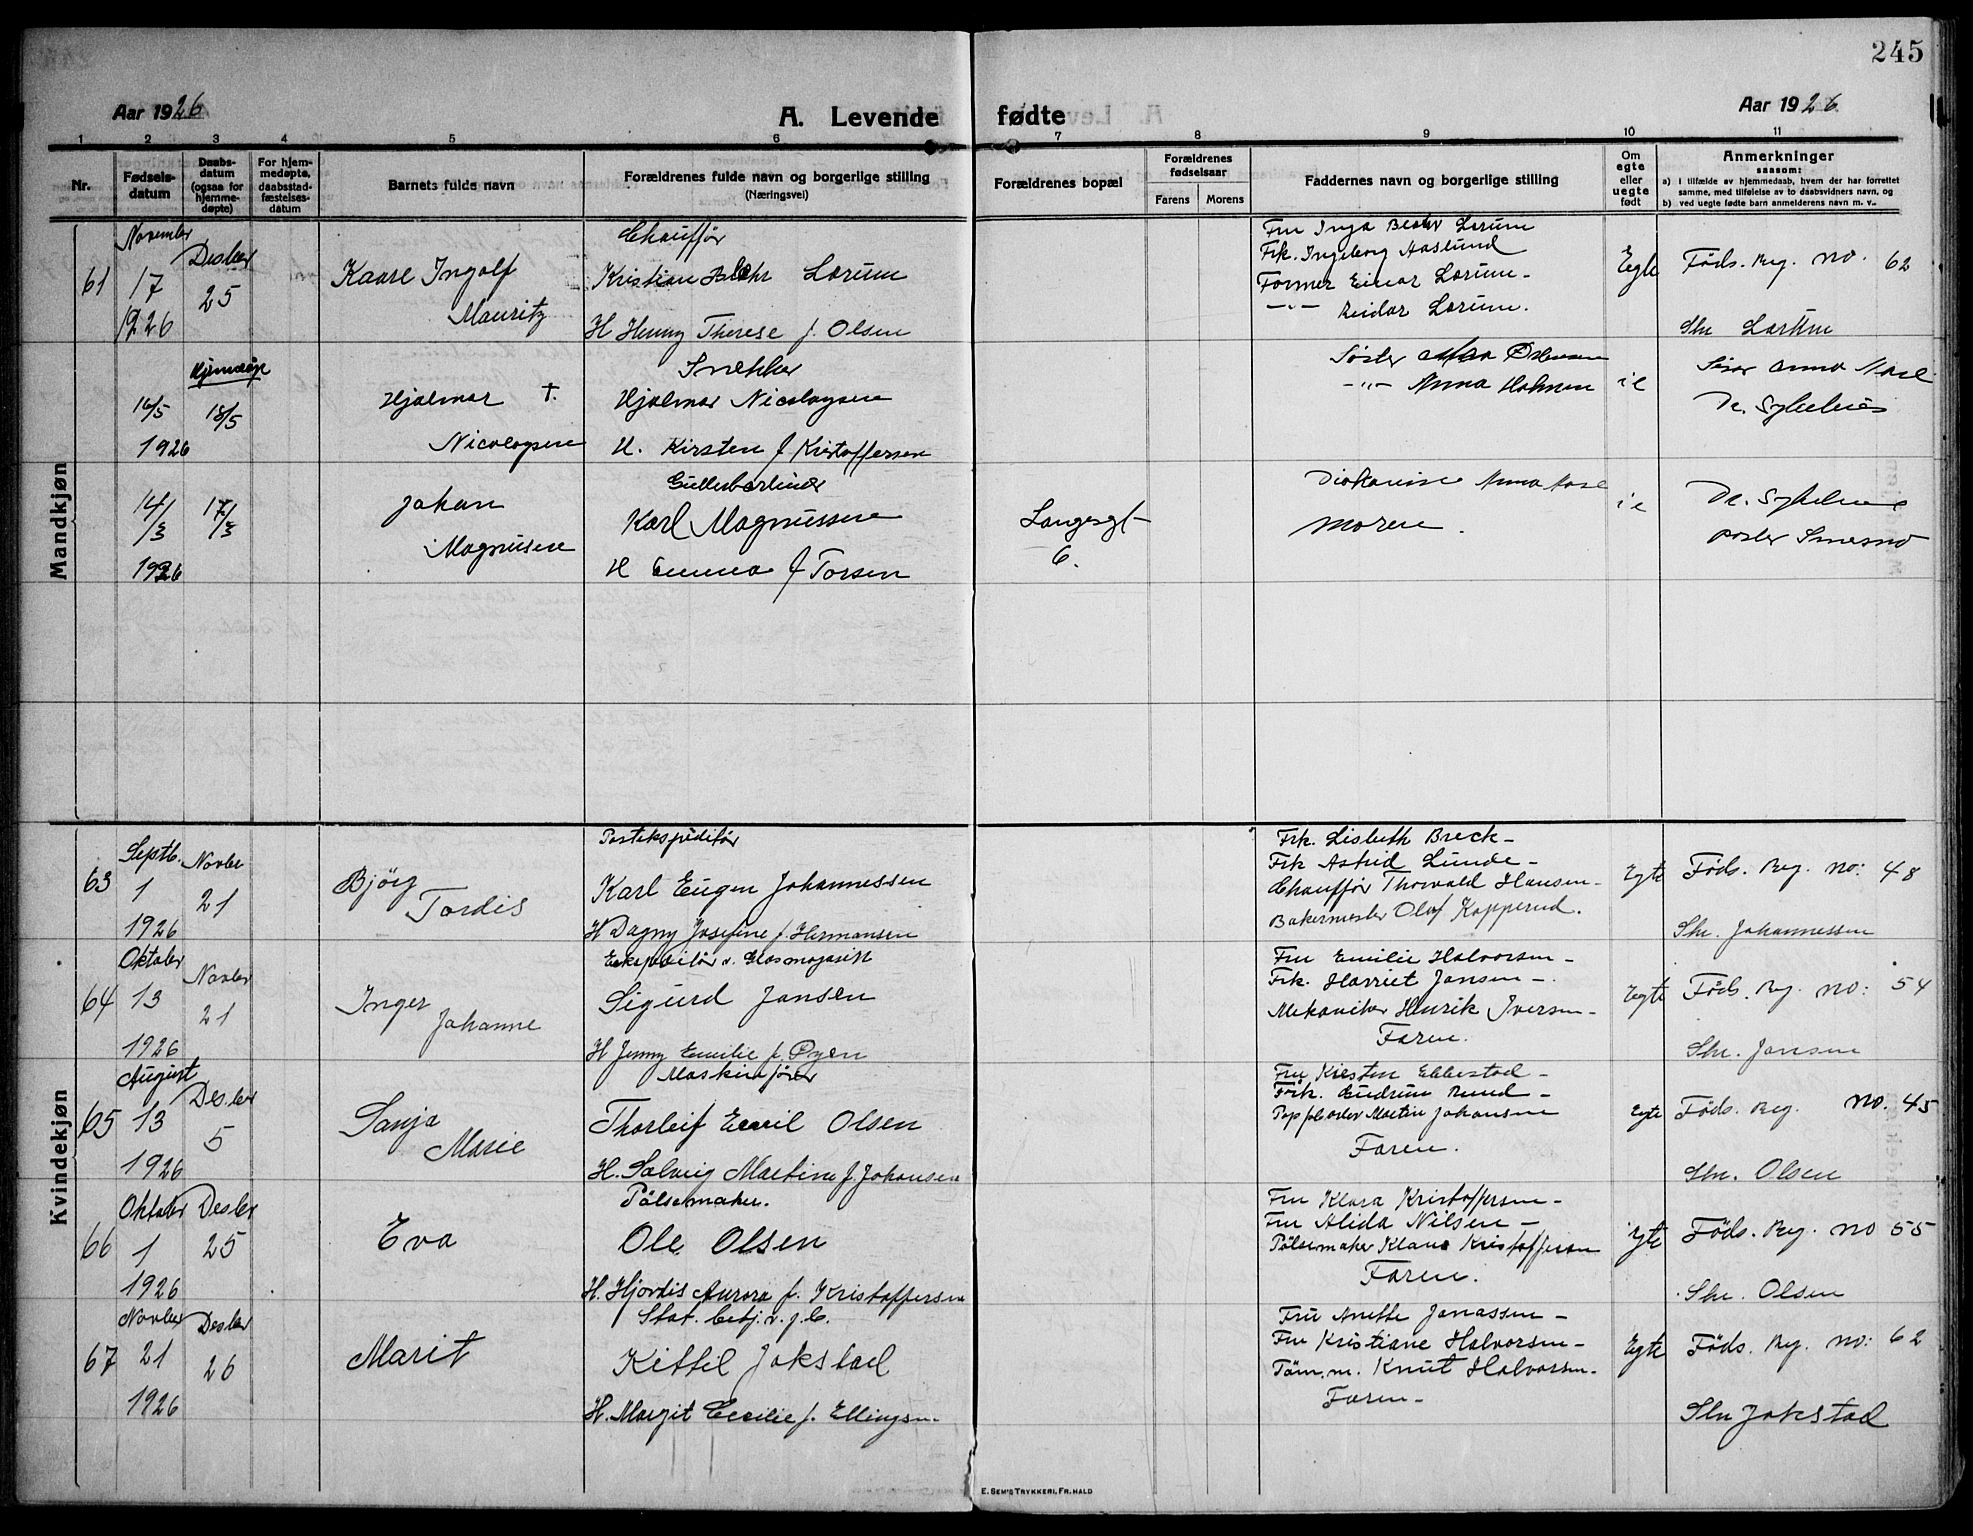 245
Aar 1926
A. Levende fødte
Aar 1926
1 2 3 4 5 6 7 8 9 10 11
Nr.
Fødsels-
datum
Daabs-
datum
(ogsaa for
hjemme-
døpte)
For hjem-
medøpte,
daabsstad-
fæstelses-
datum
Barnets fulde navn
Forældrenes fulde navn og borgerlige stilling
(Næringsvei)
Forældrenes bopæl
Forældrenes
fødselsaar
Farens Morens
Faddernes navn og borgerlige stilling
Om
egte
eller
uegte
født
Anmerkninger
saasom:
a) i tilfælde av hjemmedaab, hvem der har forrettet
samme, med tilføielse av to daabsvidners navn, og
b) ved uegte fødte barn anmelderens navn m. v.
Mandkjøn
61
November
17
1926
Desbr
25
Kaare Ingolf
Mauritz
Chauffør
Kristian Lorum
H Henny Therese f. Olsen
Fru Inga Lorum
Frk. Ingeborg Aaslund
Former Einar Lorum -
-"- Reidar Lorum.
Egte
Føds. Reg. no. 62
Lorum
16/5
1926
Hjemdøpt
18/5
Hjalmar †.
Nicolaysen
Snekker
Hjalmar Nicolaysen
H. Kirsten f Kristoffersen
Søster
-"- Anna Holmen
Anna
14/3
1926
17/3
Johan
Magnusen
Karl Magnussen
H Emma f Torsen
Langesgt
6.
Anna
Moren.
Kvindekjøn
63
Septb.
1
1926
Novbr
21
Bjørg
Tordis
Postekspeditør
Karl Eugen Johannessen
H Dagny Josefine f. Hermansen
Frk. Lisbeth Breck -
Frk Astrid Lunde -
Chauffør Thorvald Hansen -
Bakermester Olaf Kopperud.
Egte
Føds. Reg. no: 48
Johannessen
64
Oktober
13
1926
Novbr
21
Inger
Johanne
Ekspeditør v. Glasmagasin
Sigurd Jansen
H Jenny Emilie f. Øyen
Fru Emilie Halvorsen -
Frk. Harriet Jansen -
Mekaniker Henrik Iversen -
Faren.
Egte
Føds. Reg. no: 54
Jansen
65
August
13
1926
Desbr
5
Sanja
Marie
Maskinfører
Thorleif Emil Olsen
H. Solveig Martine f. Johansen
Fru Kirsten Ellestad -
Frk. Gudrun Rund -
Martin Johansen
Faren.
Egte
Føds. Reg. no. 45
Olsen
66
Oktober
1
1926
Desbr
25
Eva
Pølsemaker.
Ole Olsen
H. Hjørdis Aurora f. Kristoffersen
Fru Klara Kristoffersen -
Fru Alida Nilsen -
Pølsemaker Klaus Kristoffersen
Faren.
Egte
Føds. Reg. no 55
Olsen
67
Novbr
21
1926
Desbr
26
Marit
Stat. betj. v. j.b.
Kittil Jokstad
H. Margit Cecilie f. Ellingsen
Fru Anette Jonassen -
Fru Kristiane Halvorsen -
Tøm.m. Knut Halvorsen -
Faren -
Egte
Føds. Reg. no: 62
Jokstad
E. SEM'S TRYKKERI, FR.HALD